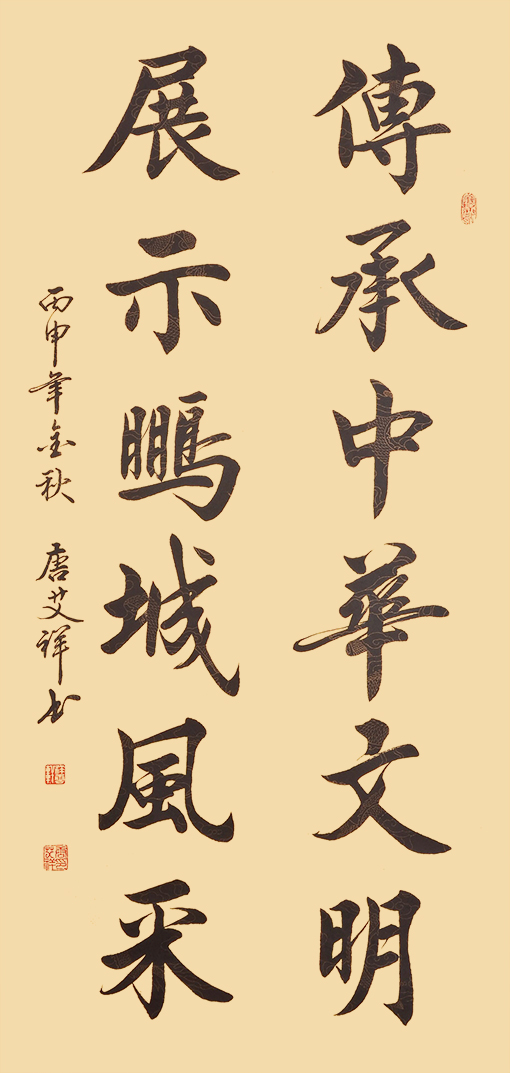 傳承中華文明
展示鵬城風采
丙申年金秋 唐艾祥书